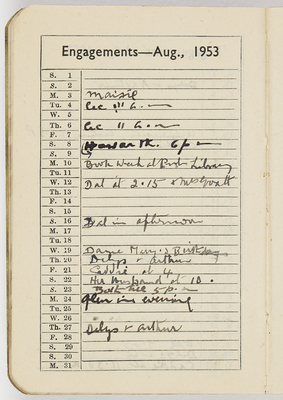 Engagements—Aug., 1953
S. 1
S. 2
M. 3 Maisie
Tu. 4 Cec 11 a.m
W. 5
Th. 6 Cec 11 a.m
F. 7
S. 8 Howarth. 6 p m
S. 9
M. 10 Book Week at Library
Tu. 11
W. 12 Dal at 2.15
Th. 13
F. 14
S. 15
S. 16 Dal in afternoon
M. 17
Tu. 18
W. 19 Dame Mary's Birthday
Th. 20 Delys + Arthur
F. 21 at 4
S. 22 Her Husband at 10.
S. 23 5 p.m
M. 24 Glen in evening
Tu. 25
W. 26
Th. 27 Delys + Arthur
F. 28
S. 29
S. 30
M. 31